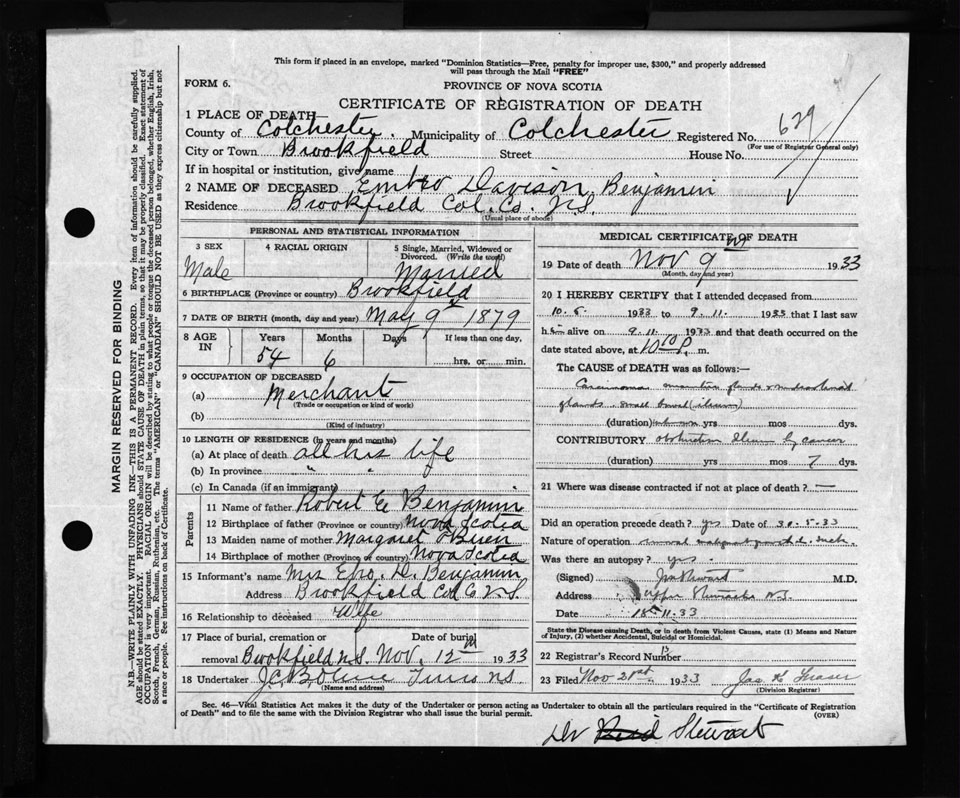 This form if placed in an envelope, marked "Dominion Statistics—Free, penalty for improper use, $300," and properly addressed
will pass through the Mail "FREE"
FORM 6.
PROVINCE OF NOVA SCOTIA
CERTIFICATE OF REGISTRATION OF DEATH
1 PLACE OF DEATH
County of Colchester. Municipality of Colchester Registered No. 629
(For use of Registrar General only)
City or Town Brookfield Street House No.
If in hospital or institution, give name
2 NAME OF DECEASED Embro Davison Benjamin
Residence Brookfield Col. Co. N.S.
(Usual place of abode)
PERSONAL AND STATISTICAL INFORMATION
3 SEX 4 RACIAL ORIGIN 5 Single, Married, Widowed or Divorced. (Write the word)
Male Married
6 BIRTHPLACE (Province or country) Brookfield
7 DATE OF BIRTH (month, day and year) May 9 1879
8 AGE IN Years Months Days If less than one day,
54 6 hrs. or min.
9 OCCUPATION OF DECEASED
(a) Merchant
(Trade or occupation or kind of work)
(b)
(Kind of industry)
10 LENGTH OF RESIDENCE (in years and months)
(a) At place of death all his life
(b) In province " "
(c) In Canada (if an immigrant)
Parents
11 Name of father Robert E Benjamin
12 Birthplace of father (Province or country) Nova Scotia
13 Maiden name of mother Margaret O'Brien
14 Birthplace of mother (Province or country) Nova Scotia
15 Informant's name Mrs D. Benjamin
Address Brookfield Col Co N.S
16 Relationship to deceased Wife
17 Place of burial, cremation or Date of burial
removal Brookfield N.S. Nov. 12th 1933
18 Undertaker J.C. N.S.
(Name and address)
MEDICAL CERTIFICATE OF DEATH
19 Date of death Nov 9 1933
(Month, day and year)
20 I HEREBY CERTIFY that I attended deceased from
10.5. 1933 to 9.11. 1933 that I last saw
h alive on 9.11. 1933 and that death occurred on
date stated above, at 10 10 P. m.
The CAUSE of DEATH was as follows:—
Carcinoma glands
glands. small bowel (ileum)
(duration) yrs mos dys.
CONTRIBUTORY obstruction Ileum by cancer
(duration) yrs mos 7 dys.
21 Where was disease contracted if not at place of death? —
Did an operation precede death? yes Date of 30.5.33
Nature of operation
Was there an autopsy? yes
(Signed) M.D.
Address Upper Stewiacke N.S.
Date 11.33
State the Disease causing Death, or in death from Violent Causes, state (1) Means and Nature
of Injury, (2) whether Accidental, Suicidal or Homicidal.
22 Registrar's Record Number 13
23 Filed Nov 21st. 1933 Jas K Fraser
(Division Registrar)
Sec. 46—Vital Statistics Act makes it the duty of the Undertaker or person acting as Undertaker to obtain all the particulars required in the "Certificate of Registration
of Death" and to file the same with the Division Registrar who shall issue the burial permit.
(OVER)
Dr Stewart
MARGIN RESERVED FOR BINDING
N.B.—WRITE PLAINLY WITH UNFADING INK—THIS IS A PERMANENT RECORD. Every item of information should be carefully supplied.
AGE should be stated EXACTLY. PHYSICIANS should STATE CAUSE OF DEATH in plain terms, so that it may be properly classified. Exact statement of
OCCUPATION is very important. RACIAL ORIGIN will be described by stating to what people or tongue the deceased person belonged, whether English, Irish,
Scotch, French, German, Russian, Ruthenian, etc. The terms "AMERICAN" or "CANADIAN" SHOULD NOT BE USED as they express citizenship but not
a race or people. See instructions on back of Certificate.